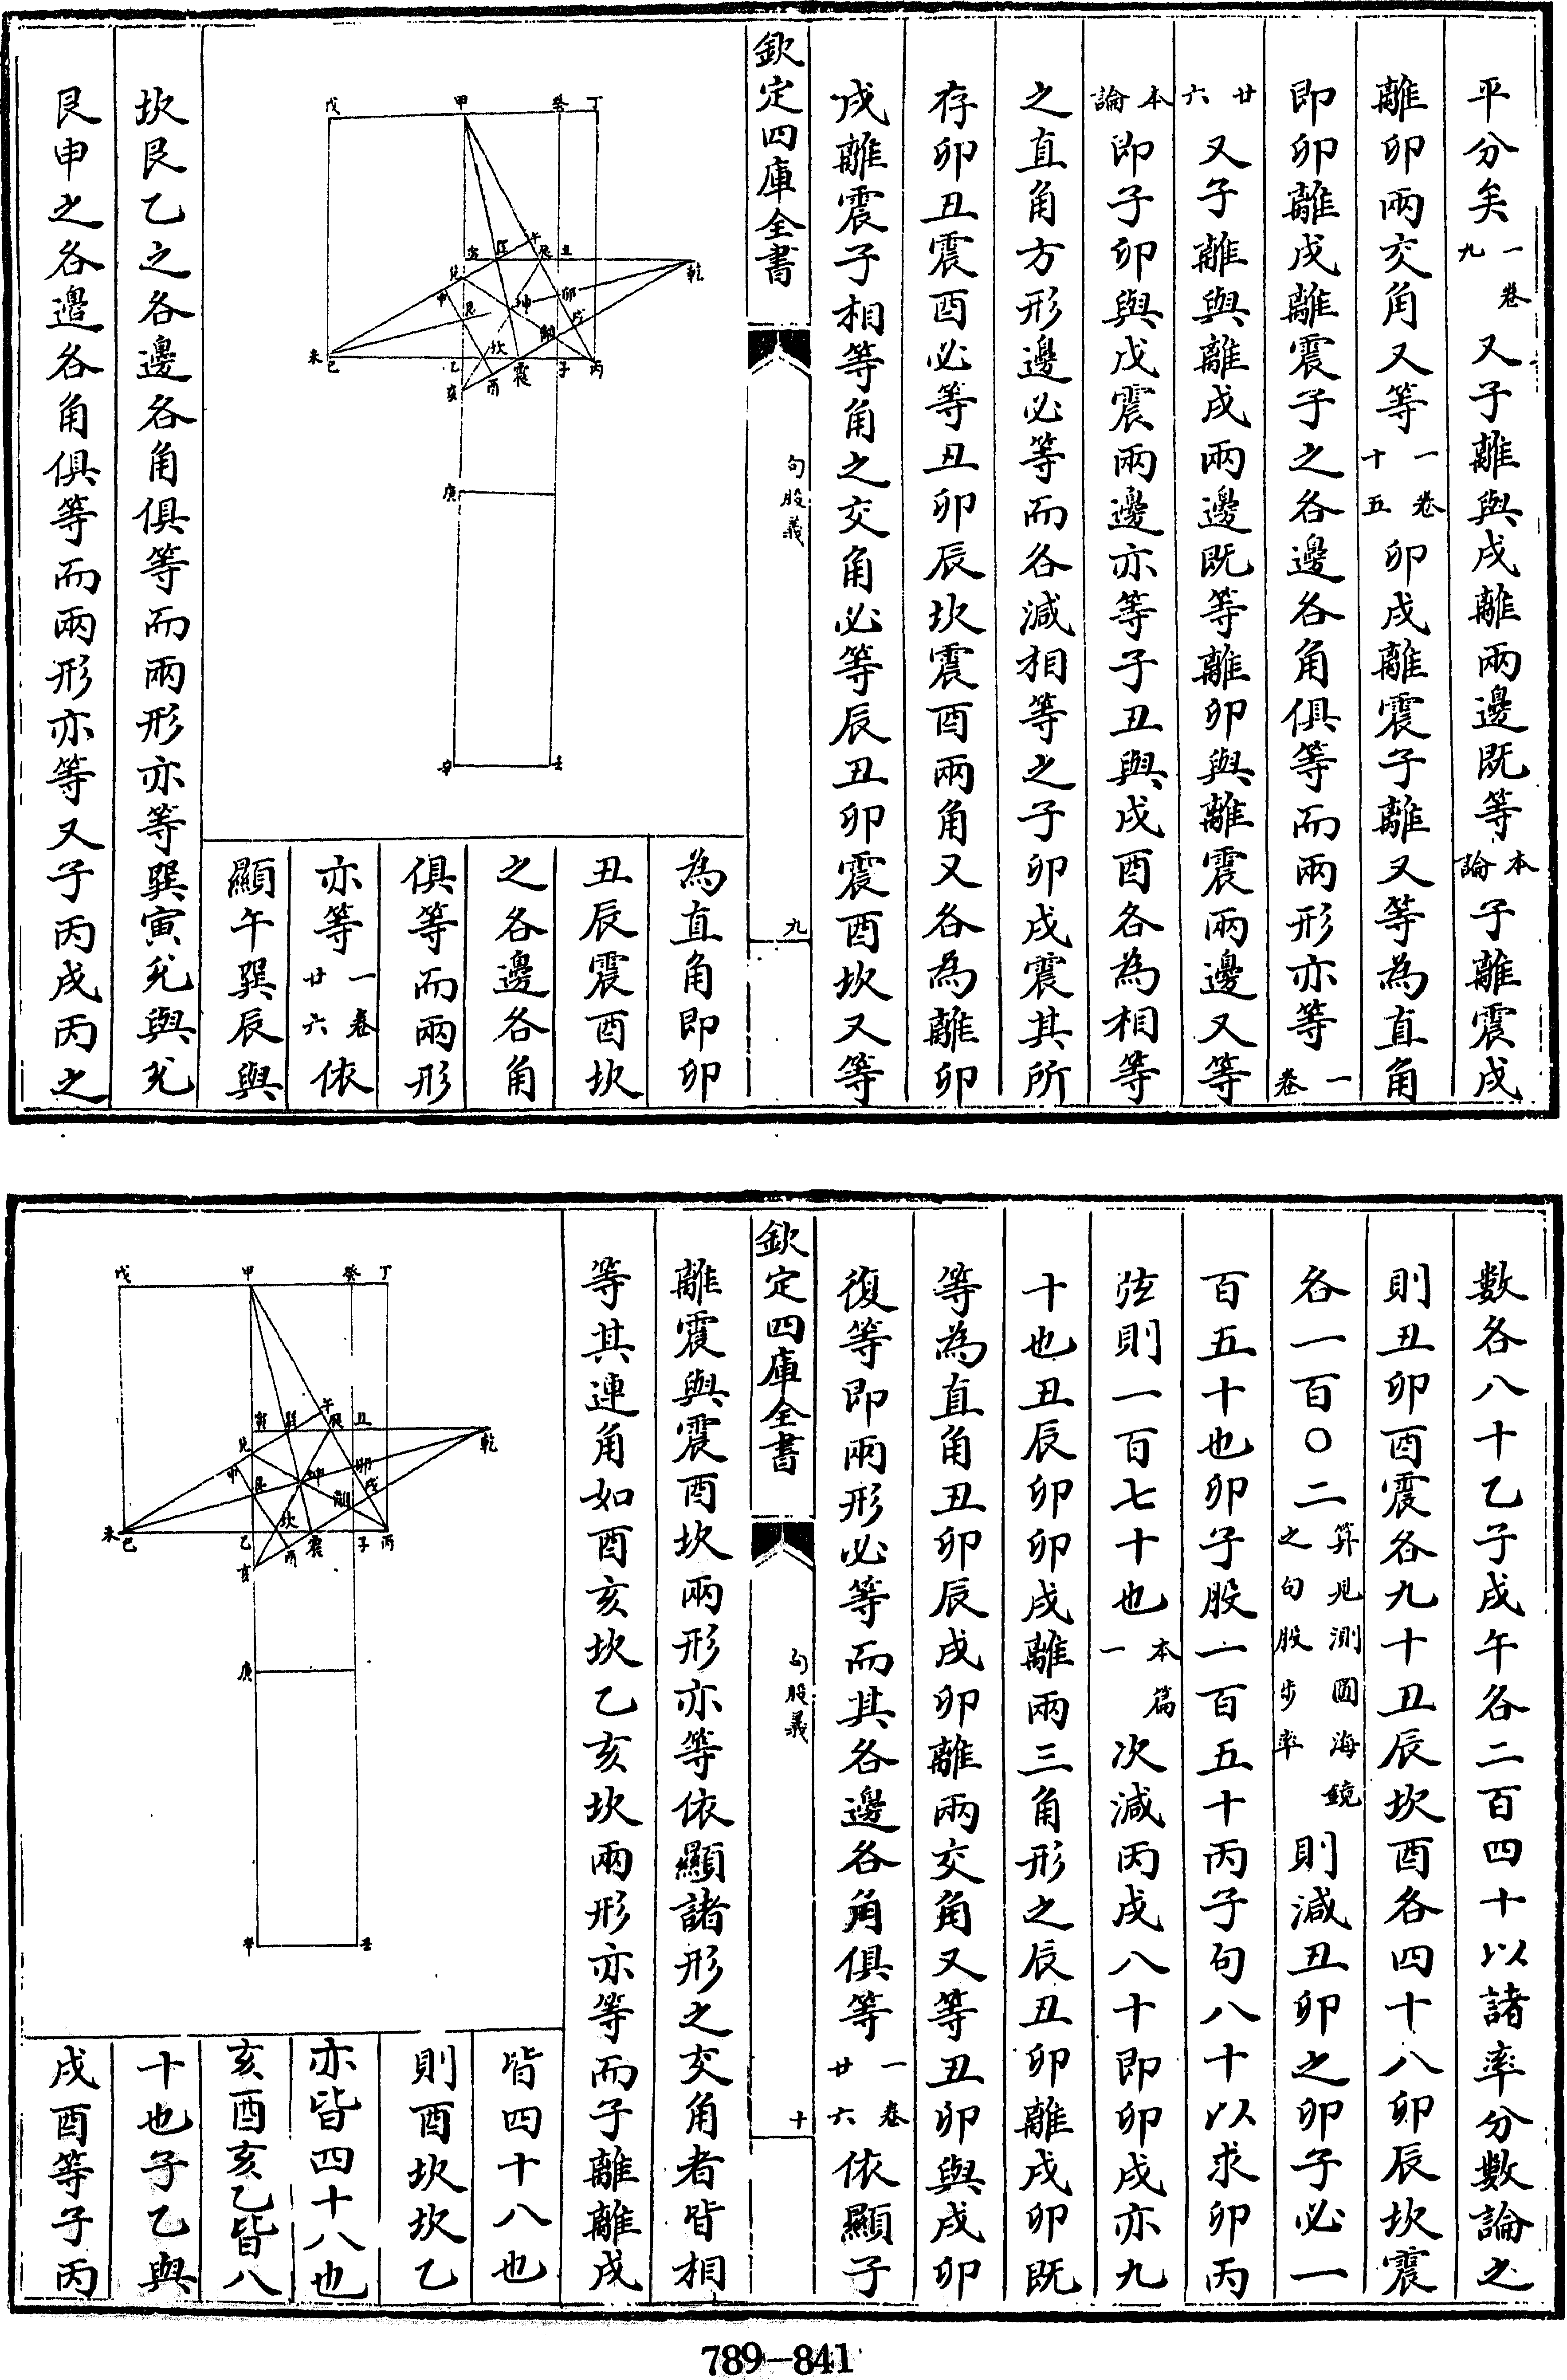 平分矣一卷九又子離與戌離兩邊既等本論子離震戌
離卯兩交角又等一卷十五卯戌離震子離又等為直角
即卯離戌離震子之各邊各角俱等而兩形亦等一卷
廿六又子離與離戌兩邊既等離卯與離震兩邊又等
本論即子卯與戌震兩邊亦等子丑與戌酉各為相等
之直角方形邊必等而各減相等之子卯戌震其所
存卯丑震酉必等丑卯辰坎震酉兩角又各為離卯
戌離震子相等角之交角必等辰丑卯震酉坎又等
欽定四庫全書
句股義
九
丁
癸
甲
戊
乾
丑
辰
午
巽
寅
兌
申
艮
坤
卯
戌
離
坎
未
己
乙
亥
酉
震
子
丙
庚
辛
壬
為直角即卯
丑辰震酉坎
之各邊各角
俱等而兩形
亦等一卷廿六依
顯午巽辰與
坎艮乙之各邊各角俱等而兩形亦等巽寅兌與兌
艮申之各邊各角俱等而兩形亦等又子丙戌丙之
數各八十乙子戌午各二百四十以諸率分數論之
則丑卯酉震各九十丑辰坎酉各四十八卯辰坎震
各一百〇二算見測圓海鏡之句股步率則減丑卯之卯子必一
百五十也卯子股一百五十丙子句八十以求卯丙
弦則一百七十也本篇一次減丙戌八十即卯戌亦九
十也丑辰卯卯戌離兩三角形之辰丑卯離戌卯既
等為直角丑卯辰戌卯離兩交角又等丑卯與戌卯
復等即兩形必等而其各邊各角俱等一卷廿六依顯子
欽定四庫全書
句股義
十
離震與震酉坎兩形亦等依顯諸形之交角者皆相
等其連角如酉亥坎乙亥坎兩形亦等而子離離戌
丁
癸
甲
戊
乾
丑
辰
午
巽
寅
兌
申
艮
坤
卯
戌
離
坎
未
己
乙
亥
酉
震
子
丙
庚
辛
壬
皆四十八也
則酉坎坎乙
亦皆四十八也
亥酉亥乙皆八
十也子乙與
戌酉等子丙
789-841